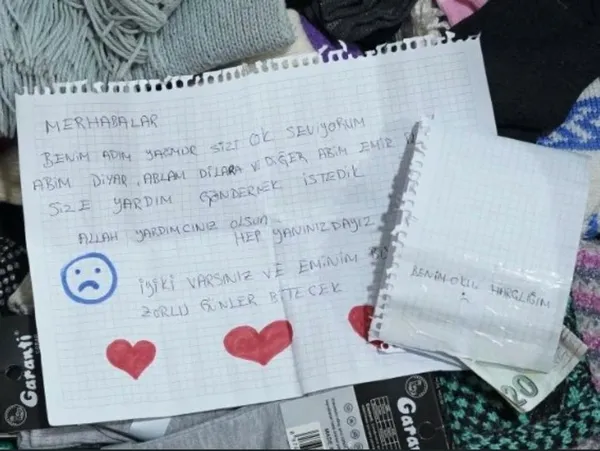 MERHABALAR
BENİM ADIM YAĞMUR SİZİ ÇOK SEVİYORUM
ABİM DİYAR, ABLAM DİLARA VE DİĞER ABİM EMİR
SİZE YARDIM GÖNDERMEK İSTEDİK
ALLAH YARDIMCINIZ OLSUN
HEP YANINIZDAYIZ
İYİKİ VARSINIZ VE EMİNİM
ZORLU GÜNLER BİTECEK
BENİM OKUL HARÇLIĞIM
20
Garanti
Garanti